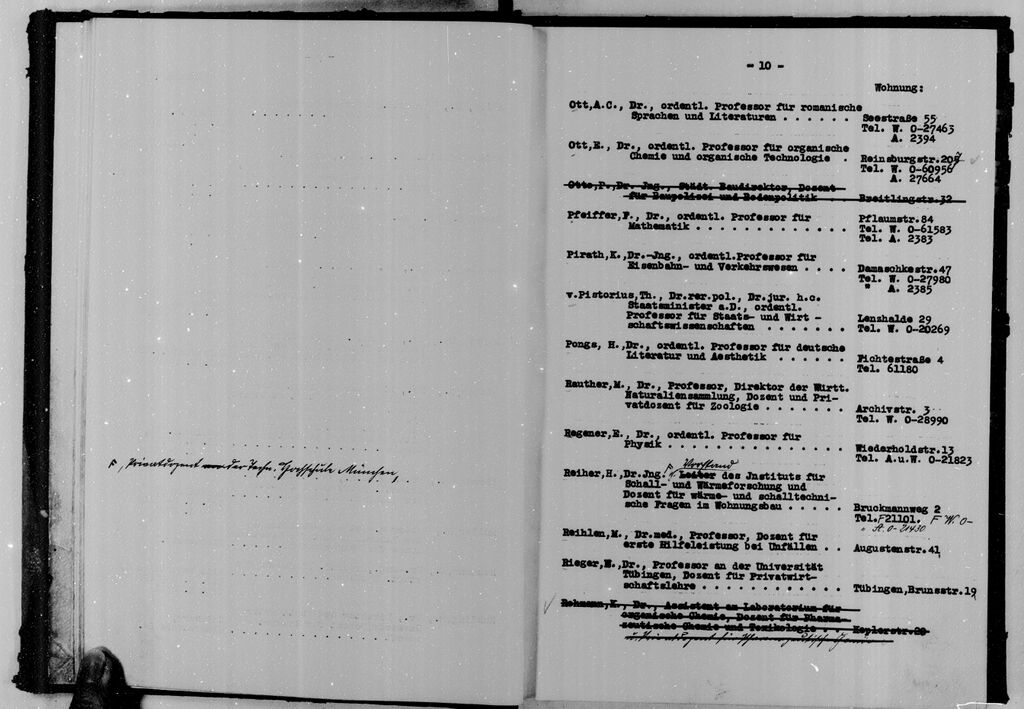 F, Privatdozent an der Techn. Hochschule München,
- 10 -
Wohnung:
Ott,A.C., Dr., ordentl. Professor für romanische
Sprachen und Literaturen . . . . . . Seestraße 55
Tel. W. 0-27463
A. 2394
Ott,E., Dr., ordentl. Professor für organische
Chemie und organische Technologie . Reinsburgstr.207
Tel. W. 0-60956
A. 27664
Otto,P.,Dr. Jng., Städt. Baudirektor, Dozent
für Baupolizei und Bodenpolitik . . . Breitlingstr.32
Pfeiffer,F., Dr., ordentl. Professor für
Mathematik . . . . . . . . . . . . . Pflaumstr.84
Tel. W. 0-61583
Tel. A. 2383
Pirath,K.,Dr.-Jng., ordentl.Professor für
Eisenbahn- und Verkehrswesen . . . . Damaschkestr.47
Tel. W. 0-27980
" A. 2385
v.Pistorius,Th., Dr.rer.pol., Dr.jur. h.c.
Staatsminister a.D., ordentl.
Professor für Staats- und Wirt -
schaftswissenschaften . . . . . . . Lenzhalde 29
Tel. W. 0-20269
Pongs, H.,Dr., ordentl. Professor für deutsche
Literatur und Aesthetik . . . . . . Fichtestraße 4
Tel. 61180
Rauther,M., Dr., Professor, Direktor der Württ.
Naturaliensammlung, Dozent und Pri-
vatdozent für Zoologie . . . . . . . Archivstr. 3
Tel. W. 0-28990
Regener,E., Dr., ordentl. Professor für
Physik . . . . . . . . . . . . . . . Wiederholdstr.13
Tel. A.u.W. 0-21823
F Vorstand
Reiher,H.,Dr.Jng. Leiter des Jnstituts für
Schall- und Wärmeforschung und
Dozent für wärme- und schalltechni-
sche Fragen im Wohnungsbau . . . . . Bruckmannweg 2
Tel.F21101. F W. 0-
" A. 0-21430
Reihlen,M., Dr.med., Professor, Dozent für
erste Hilfeleistung bei Unfällen . . Augustenstr.41
Rieger,W.,Dr., Professor an der Universität
Tübingen, Dozent für Privatwirt-
schaftslehre . . . . . . . . . . . . Tübingen,Brunsstr.19
Rohmann,K., Dr., Assistent am Laboratorium für
organische Chemie, Dozent für Pharma-
zeutische Chemie und Toxikologie . . Keplerstr.20
u. Privatdozent für Pharmazeutische